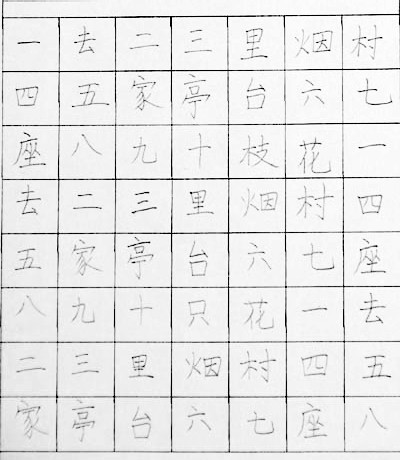 一去二三里烟村
四五家亭台六七
座八九十枝花一
去二三里烟村四
五家亭台六七座
八九十只花一去
二三里烟村四五
家亭台六七座八